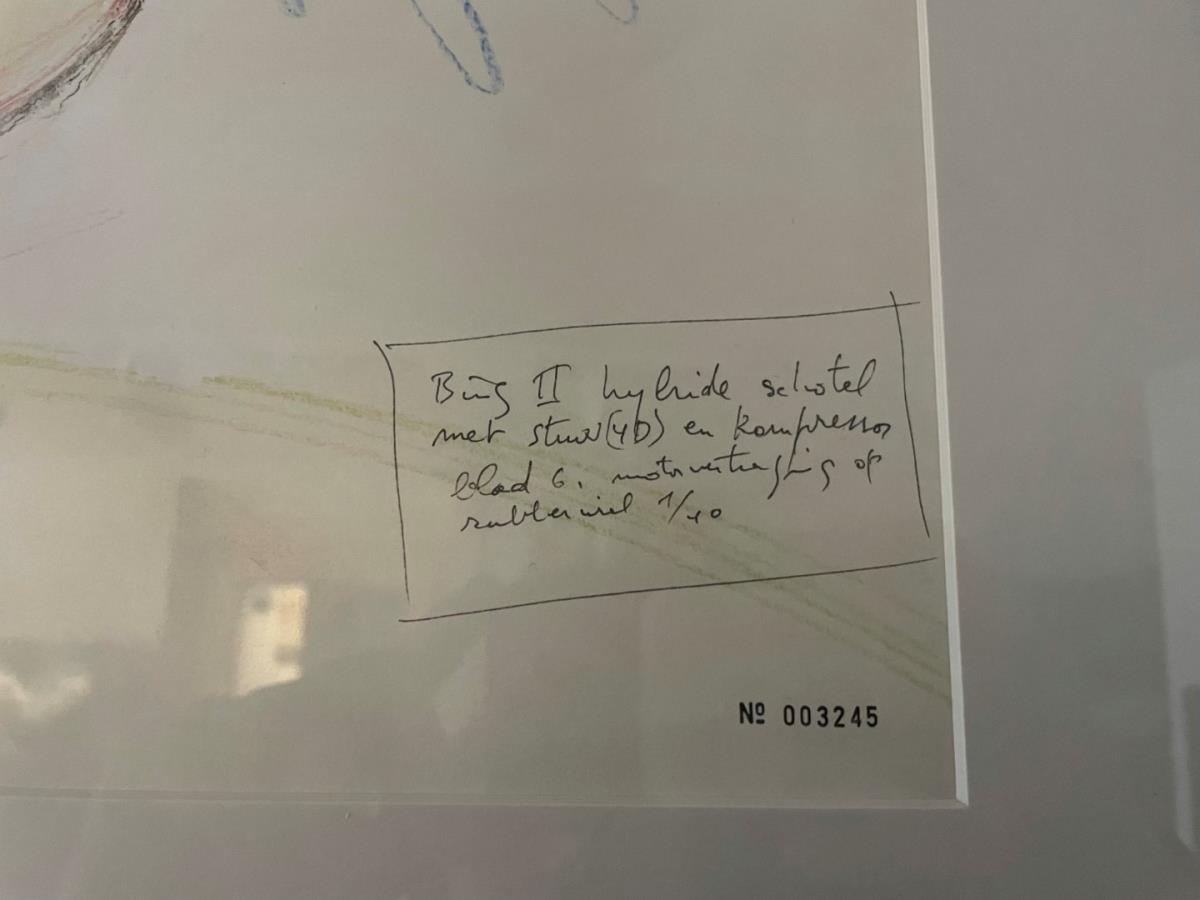 Bing II hybride schotel
met stuur(4D) en kompressor
blad 6. motorvertraging op
rubberwiel 1/40
Nº 003245